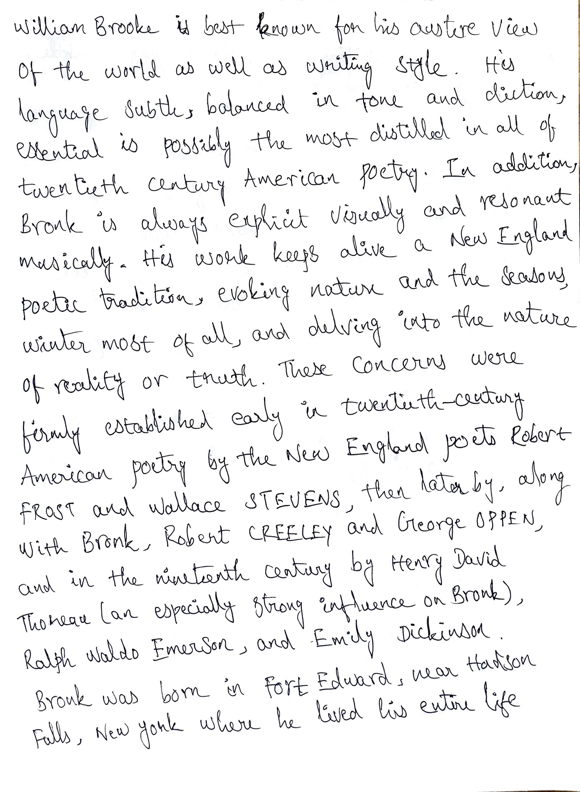 William Brooke is best known for his austere view
Of the world as well as writing style. His
language subtle, balanced in tone and diction,
essential is possibly the most distilled in all of
twentieth century American poetry. In addition,
Bronk is always explicit visually and resonant
musically. His work keeps alive a New England
poetic tradition, evoking nature and the seasons,
winter most of all, and delving into the nature
of reality or truth. These concerns were
firmly established early in twentieth-century
American poetry by the New England poets Robert
FROST and Wallace STEVENS, then later by, along
with Bronk, Robert CREELEY and George OPPEN,
and in the nineteenth century by Henry David
Thoreau (an especially strong influence on Bronk),
Ralph Waldo Emerson, and Emily Dickinson.
Bronk was born in Fort Edward, near Hudson
Falls, New York where he lived his entire life